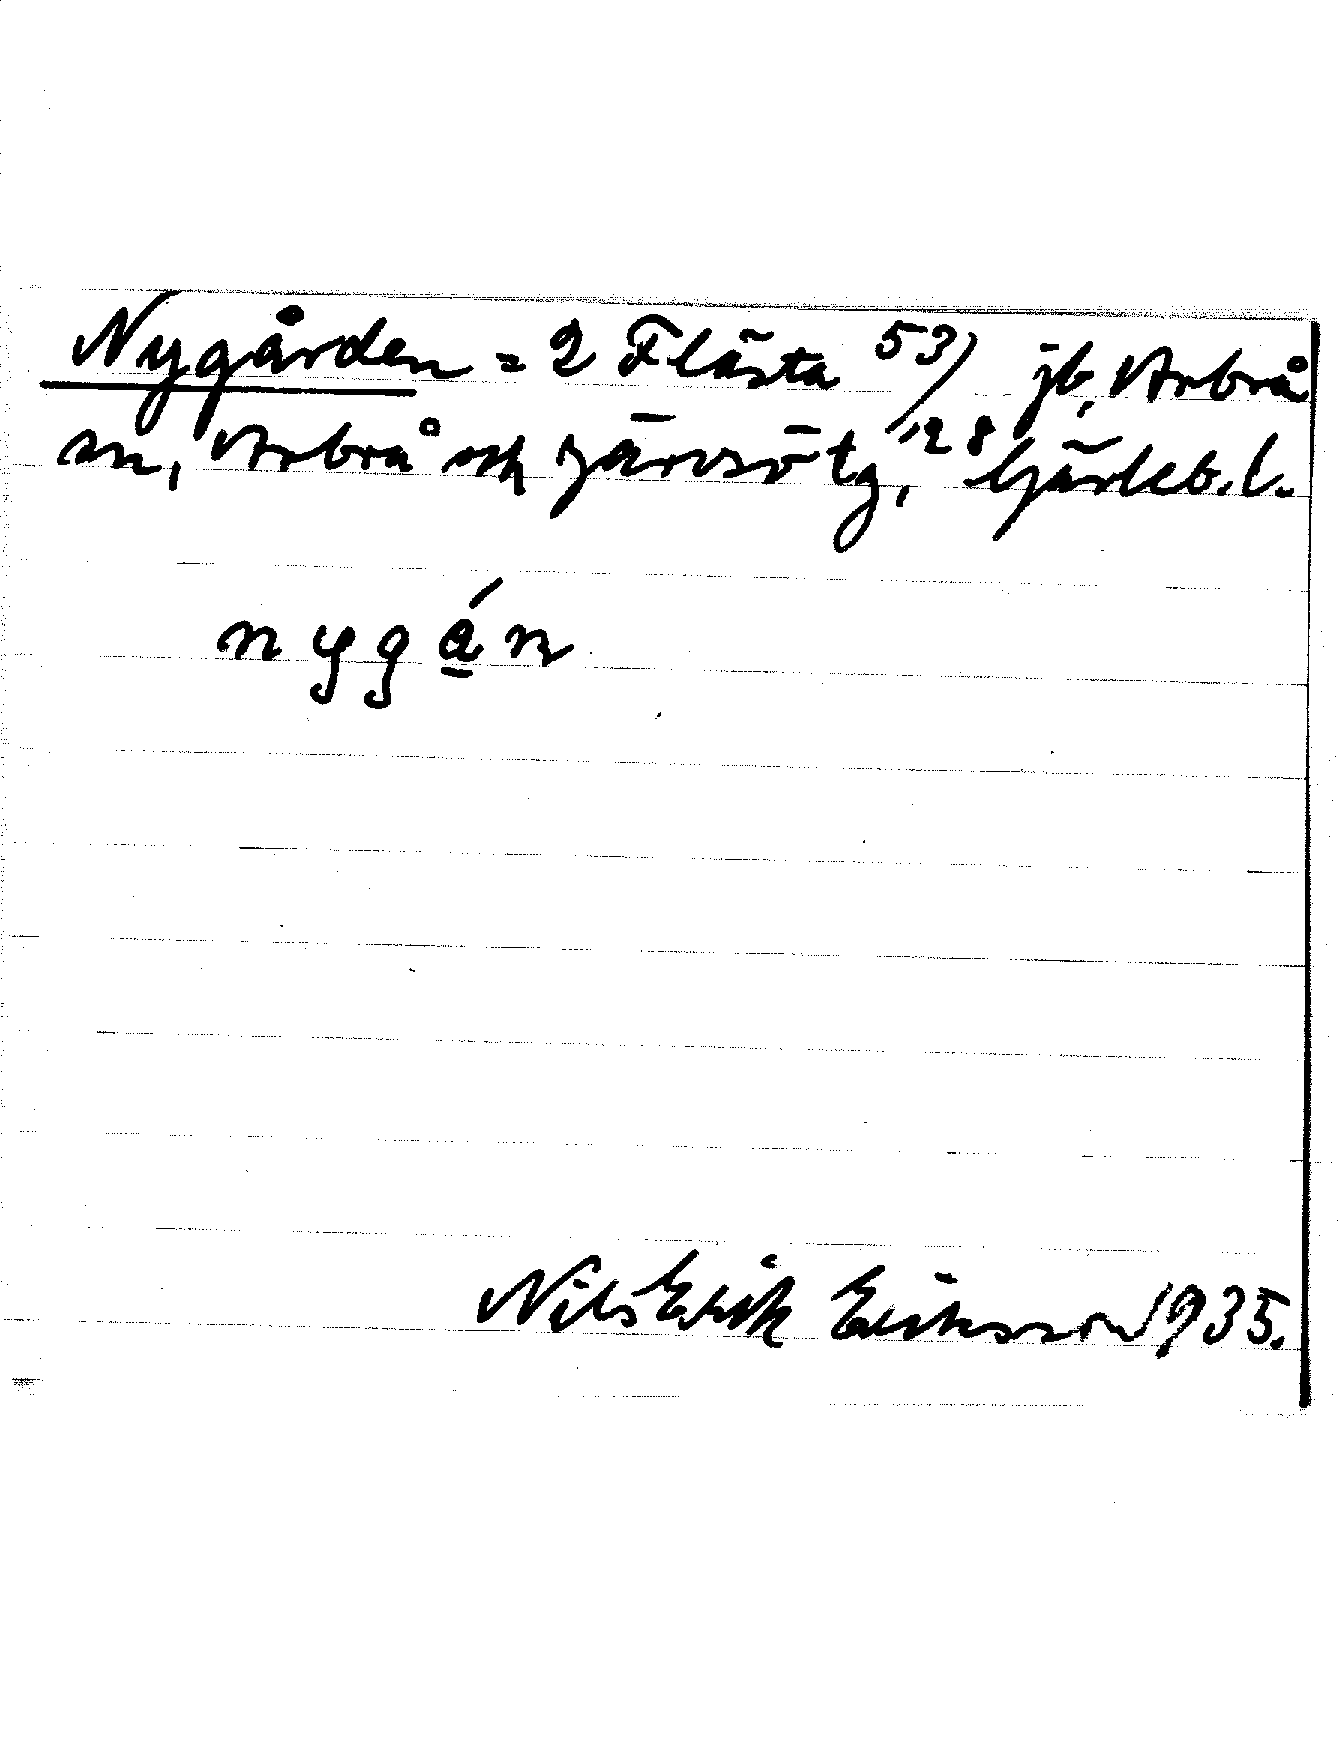 Nygården = 2 Flästa 53/128 jb, Arbrå
sn, Arbrå och Järvsö tg, Gävleb. l.
nygán
Nils Erik Eriksson 1935.